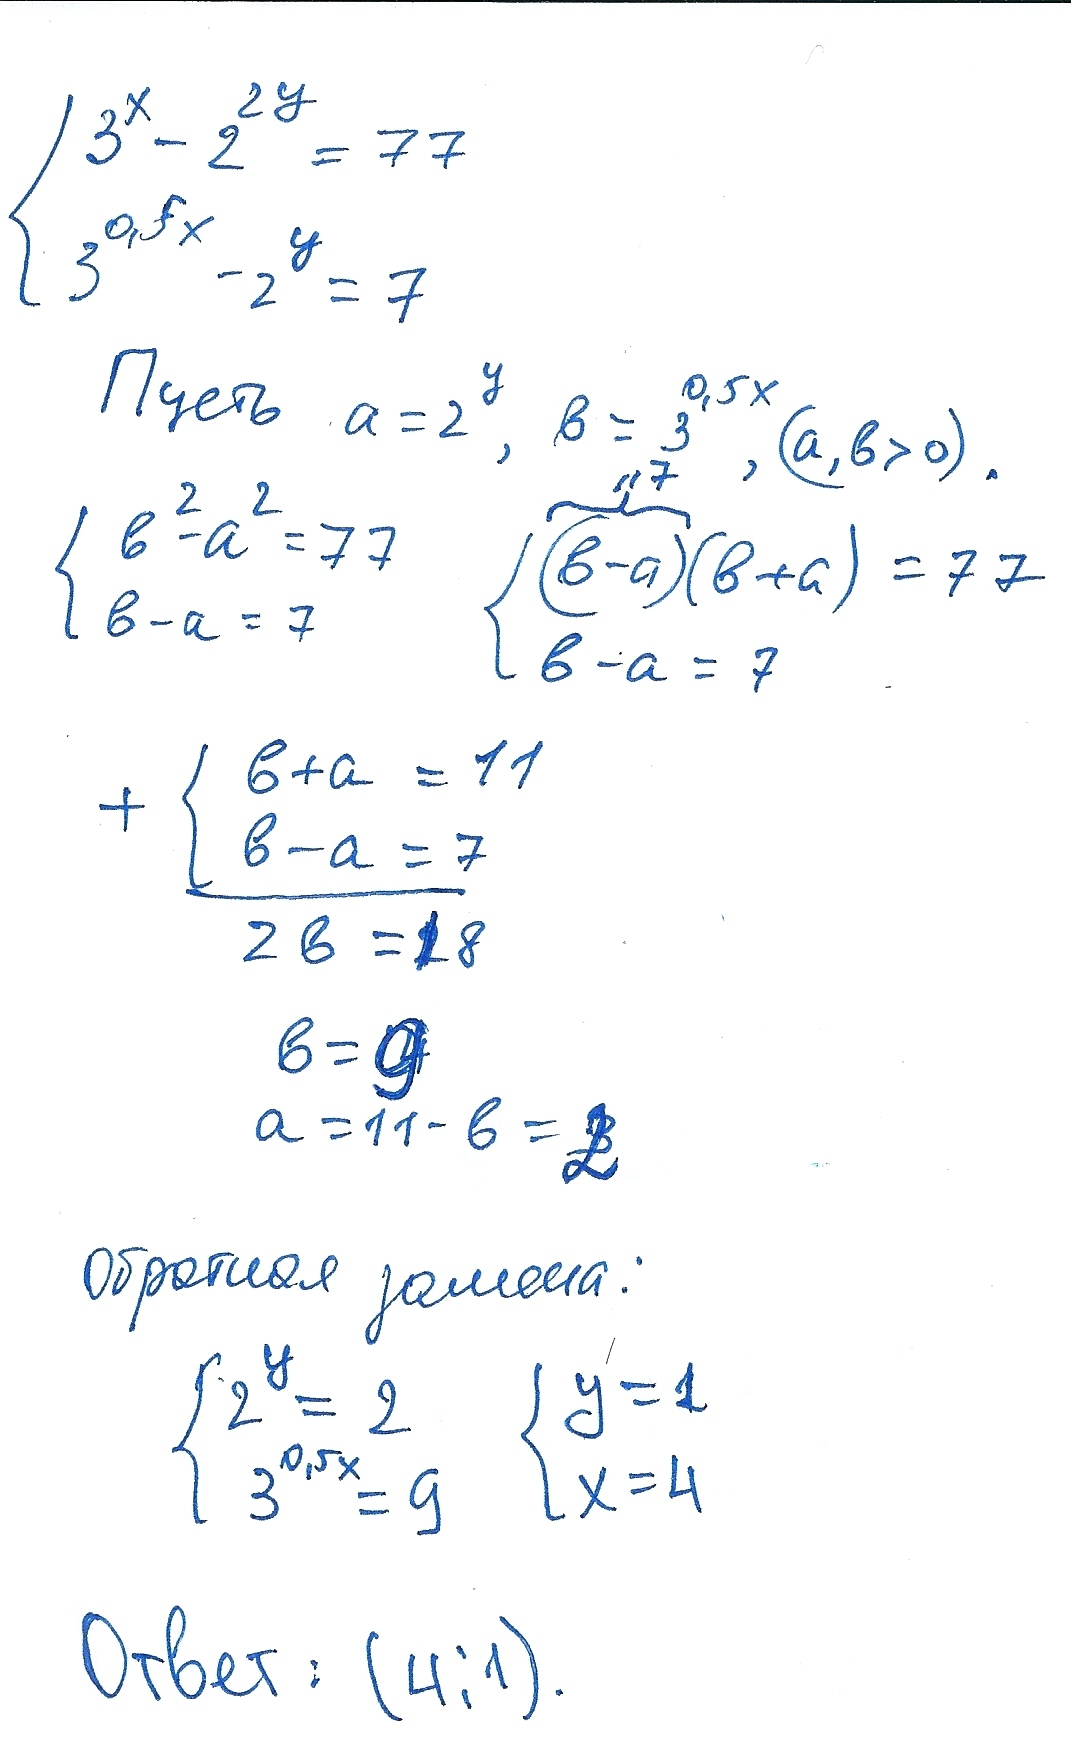 3^x - 2^{2y} = 77
3^{0,5x} - 2^y = 7
Пусть a = 2^y, в = 3^{0,5x}, (a, в > 0).
в² - a² = 77
в - a = 7
"7
(в - a)(в + a) = 77
в - a = 7
+ в + a = 11
в - a = 7
2в = 18
в = 9
a = 11 - в = 2
Обратная замена:
2^y = 2
3^{0,5x} = 9
y = 1
x = 4
Ответ: (4; 1).